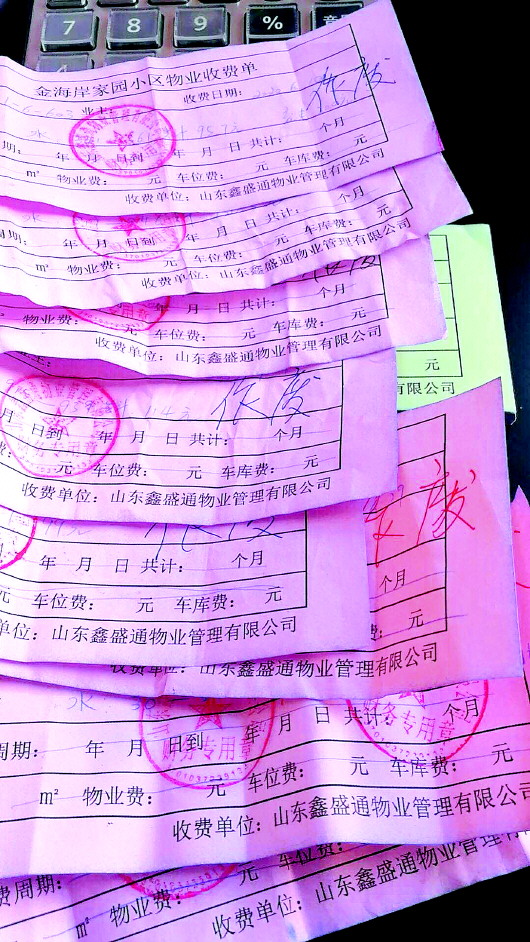 7 8 9 %
金海岸家园小区物业收费单
收费日期：
作废
水
年 月 日到 年 月 日 共计： 个月
m² 物业费： 元 车位费： 元 车库费： 元
收费单位：山东鑫盛通物业管理有限公司
年 月 日到 年 月 日 共计： 个月
m² 物业费： 元 车位费： 元 车库费： 元
收费单位：山东鑫盛通物业管理有限公司
年 月 日 共计： 个月
m² 物业费： 元 车位费： 元 车库费： 元
收费单位：山东鑫盛通物业管理有限公司
元
有限公司
作废
月 日到 年 月 日 共计： 个月
财务专用章
元 车位费： 元 车库费： 元
收费单位：山东鑫盛通物业管理有限公司
作废
年 月 日 共计： 个月
个月
元 车位费： 元 车库费： 元
元
单位：山东鑫盛通物业管理有限公司
收费单位：山东鑫盛通物业管理有限公司
水
周期： 年 月 日到 年 月 日 共计： 个月
财务专用章
财务专用章
m² 物业费： 元 车位费： 元 车库费： 元
收费单位：山东鑫盛通物业管理有限公司
费周期：
m² 物业费： 元 车位费： 元
收费单位：山东鑫盛通物业管理有限公司